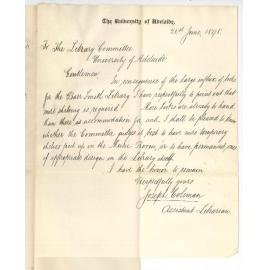 The University of Adelaide,
20th June, 1898.
To The Library Committee
University of Adelaide
Gentlemen
In consequence of the large influx of books
for the Barr Smith Library I have respectfully to point out that
more shelving is required. More books are already to hand
than there is accommodation for, and I shall be pleased to know
whether the Committee judges it best to have more temporary
shelves put up in the Music Room, or to have permanent ones
of appropriate design in the Library itself.
I have the honor to remain
Respectfully yours
Joseph Coleman
Assistant Librarian